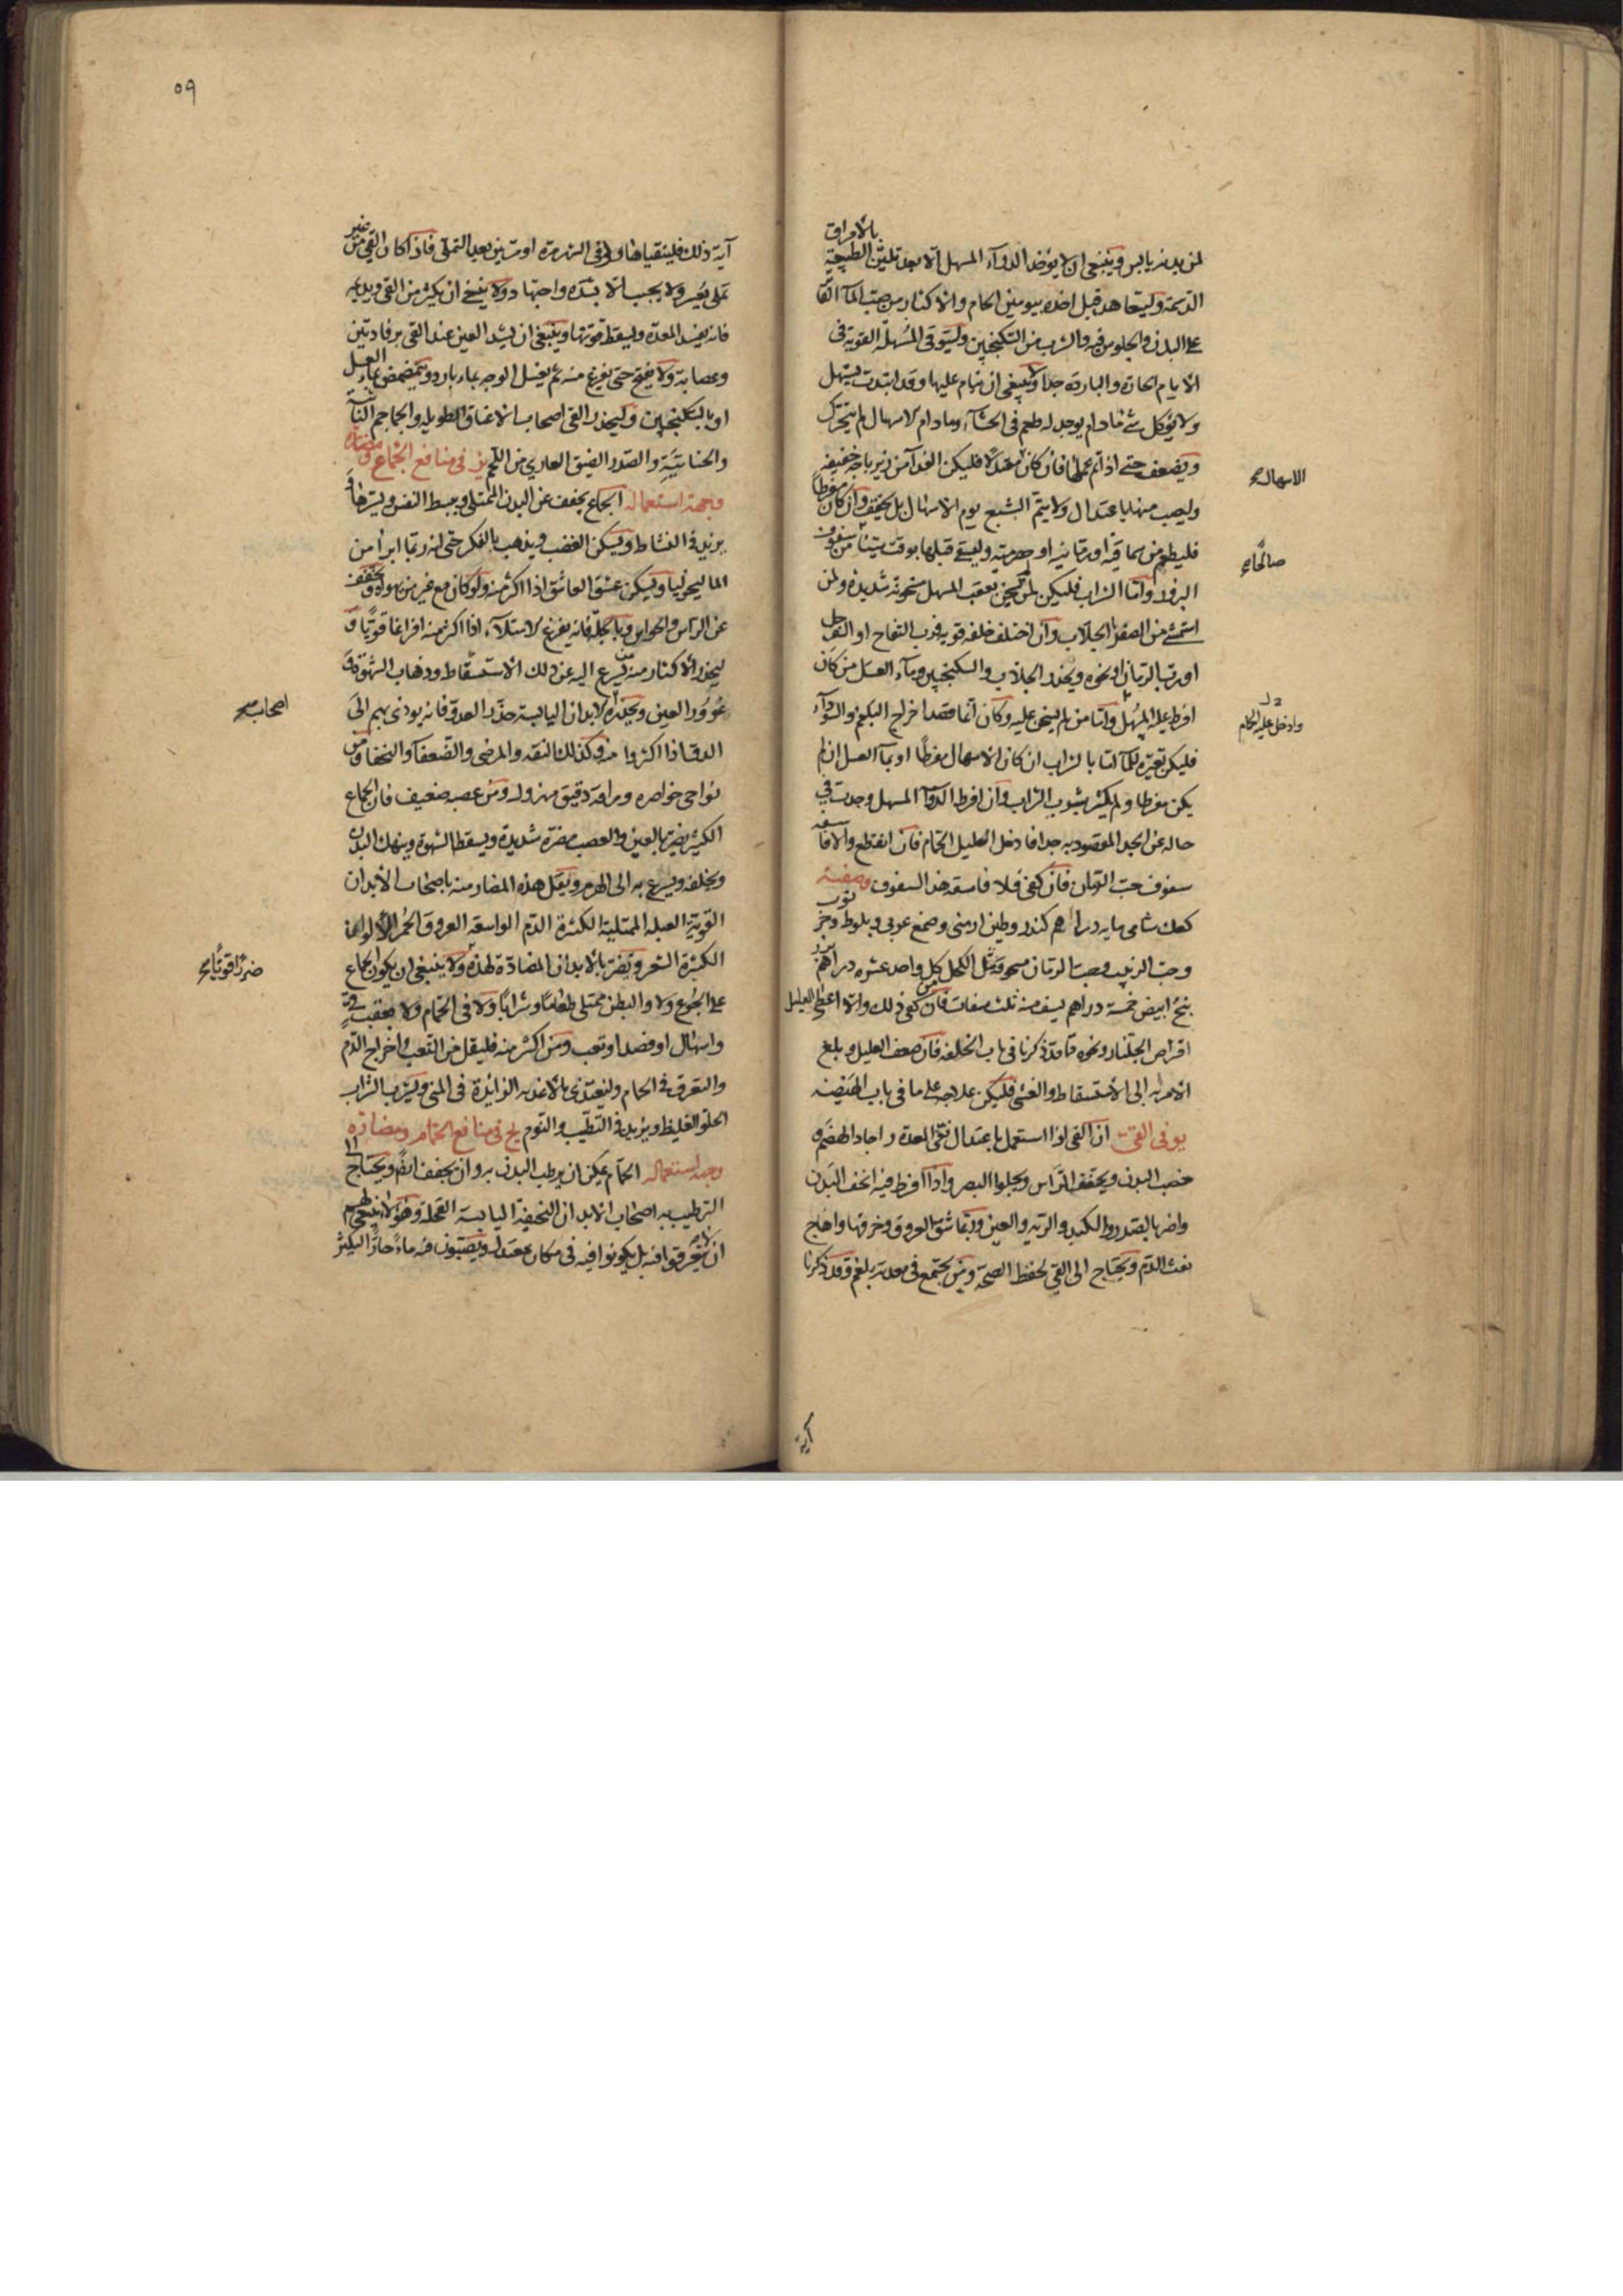 بالأمراق
لمن بدنه يابس وينبغي ان لا يؤخذ الدوآء المسهل الا بعد تليين الطبيعة
الدسمة وليتعاهد قبل اخذه بيومين الحام والاكثار من صب المآ الفاتر
على البدن والجلوس فيه والشرب من السكنجبين وليتوقى المسهلة القوية في
الأيام الحارة والباردة جدا ولا ينبغي ان ينام عليها وقد ابتدت تسهل
ولا يؤكل شئ ما دام يوجد له طعم في الجشآء وما دام الاسهال لم يتحرك
ويضعف حتى اذا تم عملها فان كان معتدلا فليكن الغدآ من زيرباجه خفيفه
وليصب منها باعتدال ولا يتم الشبع يوم الاسهال بل يخفف وان كان مفرطا
فليطعم من سماقيه او رمانيه او حصرميه وليسق قبلها بوقت شيئا من سفوف
البزور واما الشراب فليكن لمن يسخن بعقب المسهل سخونة شديدة ولمن
استمشى من الصفرا الجلاب وان اختلف خلفه قويه فرب التفاح او السفرجل
او رب الرمان او نحوه ويحذر الجلاب والسكنجبين ومآء العسل من كان
افرط عليه المسهل واما من لم يسخن عليه وكان انما قصد اخراج البلغم والسودآء
فليكن تغيره للمآ اما بالشراب ان كان الاسهال مفرطا او بمآ العسل ان لم
يكن مفرطا ولم يكثر بشوب الشراب وان افرط الدوآ المسهل وجدت في
حاله عن الحد المقصود به جدا فادخل العليل الحمام فان انقطع والا فاسقه
سفوف حب الرمان فان كفى فلا فاسقه هذا السفوف وصفته
كعك شامى مايه دراهم كندر وطين ارمنى وصمغ عربي وبلوط وخرنوب
وحب الزبيب وحب الرمان مسحوق مثل الكحل كل واحد عشره دراهم بزر
بنج ابيض خمسة دراهم يسف منه ثلث سفات فان كفى ذلك والا اعطى العليل
اقراص الجلنار ونحوه مما قد ذكرنا في باب الخلفه فان ضعف العليل وبلغ
الأمر به الى الأستسقاط والغشى فليكن علاجه على ما في باب الهيضه
يو في القئ ان القي اذا استعمل باعتدال نقى المعدة واجاد الهضم و
خصب البدن ويخفف الرأس ويجلوا البصر واذا افرط فيه انحف البدن
واضر بالصدر والكبد والريه والعين وربما شق العروق وخرقها واهاج
نفث الدم ويحتاج الى القي لحفظ الصحة ومن يجتمع في معدته بلغم وقد ذكرنا
الاسهال صح
صالحا صح
وادخل عليه الحام
آية
٥٩
آية ذلك فليتقيا هاولا في الشهر مرة او مرتين بعد التملى فاذا كان القي من غير
تملى يعسر ولا يجب الا بشدة واجتهاد ولا ينبغي ان يكثر من القى ويدعيه
فانه يفسد المعدة ويسقط قوتها وينبغي ان يشد العين عند القى برفادتين
وعصابة ولا يفتح حتى يفرغ منه ثم يغسل الوجه بماء بارد ويتمضمض بماء العسل
او بالسكنجبين وليحذر القى اصحاب الاعناق الطويله والحناجر الناتئة
والصدر الضيق العاري من اللحم يز في منافع الجماع ومضاره
وجهة استعماله الجماع يخفف عن البدن الممتلى ويبسط النفس ويسرها و
يزيد في النشاط ويسكن الغضب ويذهب بالفكر حتى انه ربما ابرأ من
الماليخوليا ويسكن عشق العاشق اذا اكثر منه ولو كان مع غير من يهواه ويخفف
عن الرأس والحواس وبالجلة فانه يفرغ الامتلآء اذا اكثر منه افراغا قويا و
ليحذر الاكثار منه من يسرع اليه عن ذلك الاستسقاط وذهاب الشهوة و
غوور العين ويحذره الابدان اليابسة حذر العدو فانه يودى بهم الى
الدق اذا اكثروا منه وكذلك النقه والمرضى والضعفآ والنحفا ومن
نواحي خواصره ومراقه دقيق مهزول ومن عصبه ضعيف فان الجماع
الكثير يضر بالعين والعصب مضرة شديدة ويسقط الشهوة وينهك البدن
ويخلقه ويسرع به الى الهرم ويقل هذه المضار منه باصحاب الأبدان
القوية العبله الممتلية الكثيرة الدم الواسعه العروق الحمر الألوان
الكثيرة الشعر ويضر بالأبدان المضادة لهذه ولا ينبغي ان يكون الجماع
على الجوع ولا والبطن ممتلى طعاما وشرابا ولا في الحمام ولا بعقب قئ
واسهال او فصد او تعب ومن اكثر منه فليقل من التعب واخراج الدم
والتعرق في الحام وليغتذى بالأغذيه الزائدة في المنى ويشرب الشراب
الحلو الغليظ ويزيد في التطيب والنوم يح في منافع الحمام ومضاره
وجهة استعماله الحمام يمكن ان يرطب البدن به وان يجفف ايضا ويحتاج الى
الترطيب به اصحاب الابدان النحيفة اليابسة القحلة وهؤلاء ينبغي لهم
ان لا يتعرقوا فيه بل يكونوا فيه في مكان معتدل ويصبون فيه ماء حارا ليكثر
اصحاب صح
ضررا قويا صح